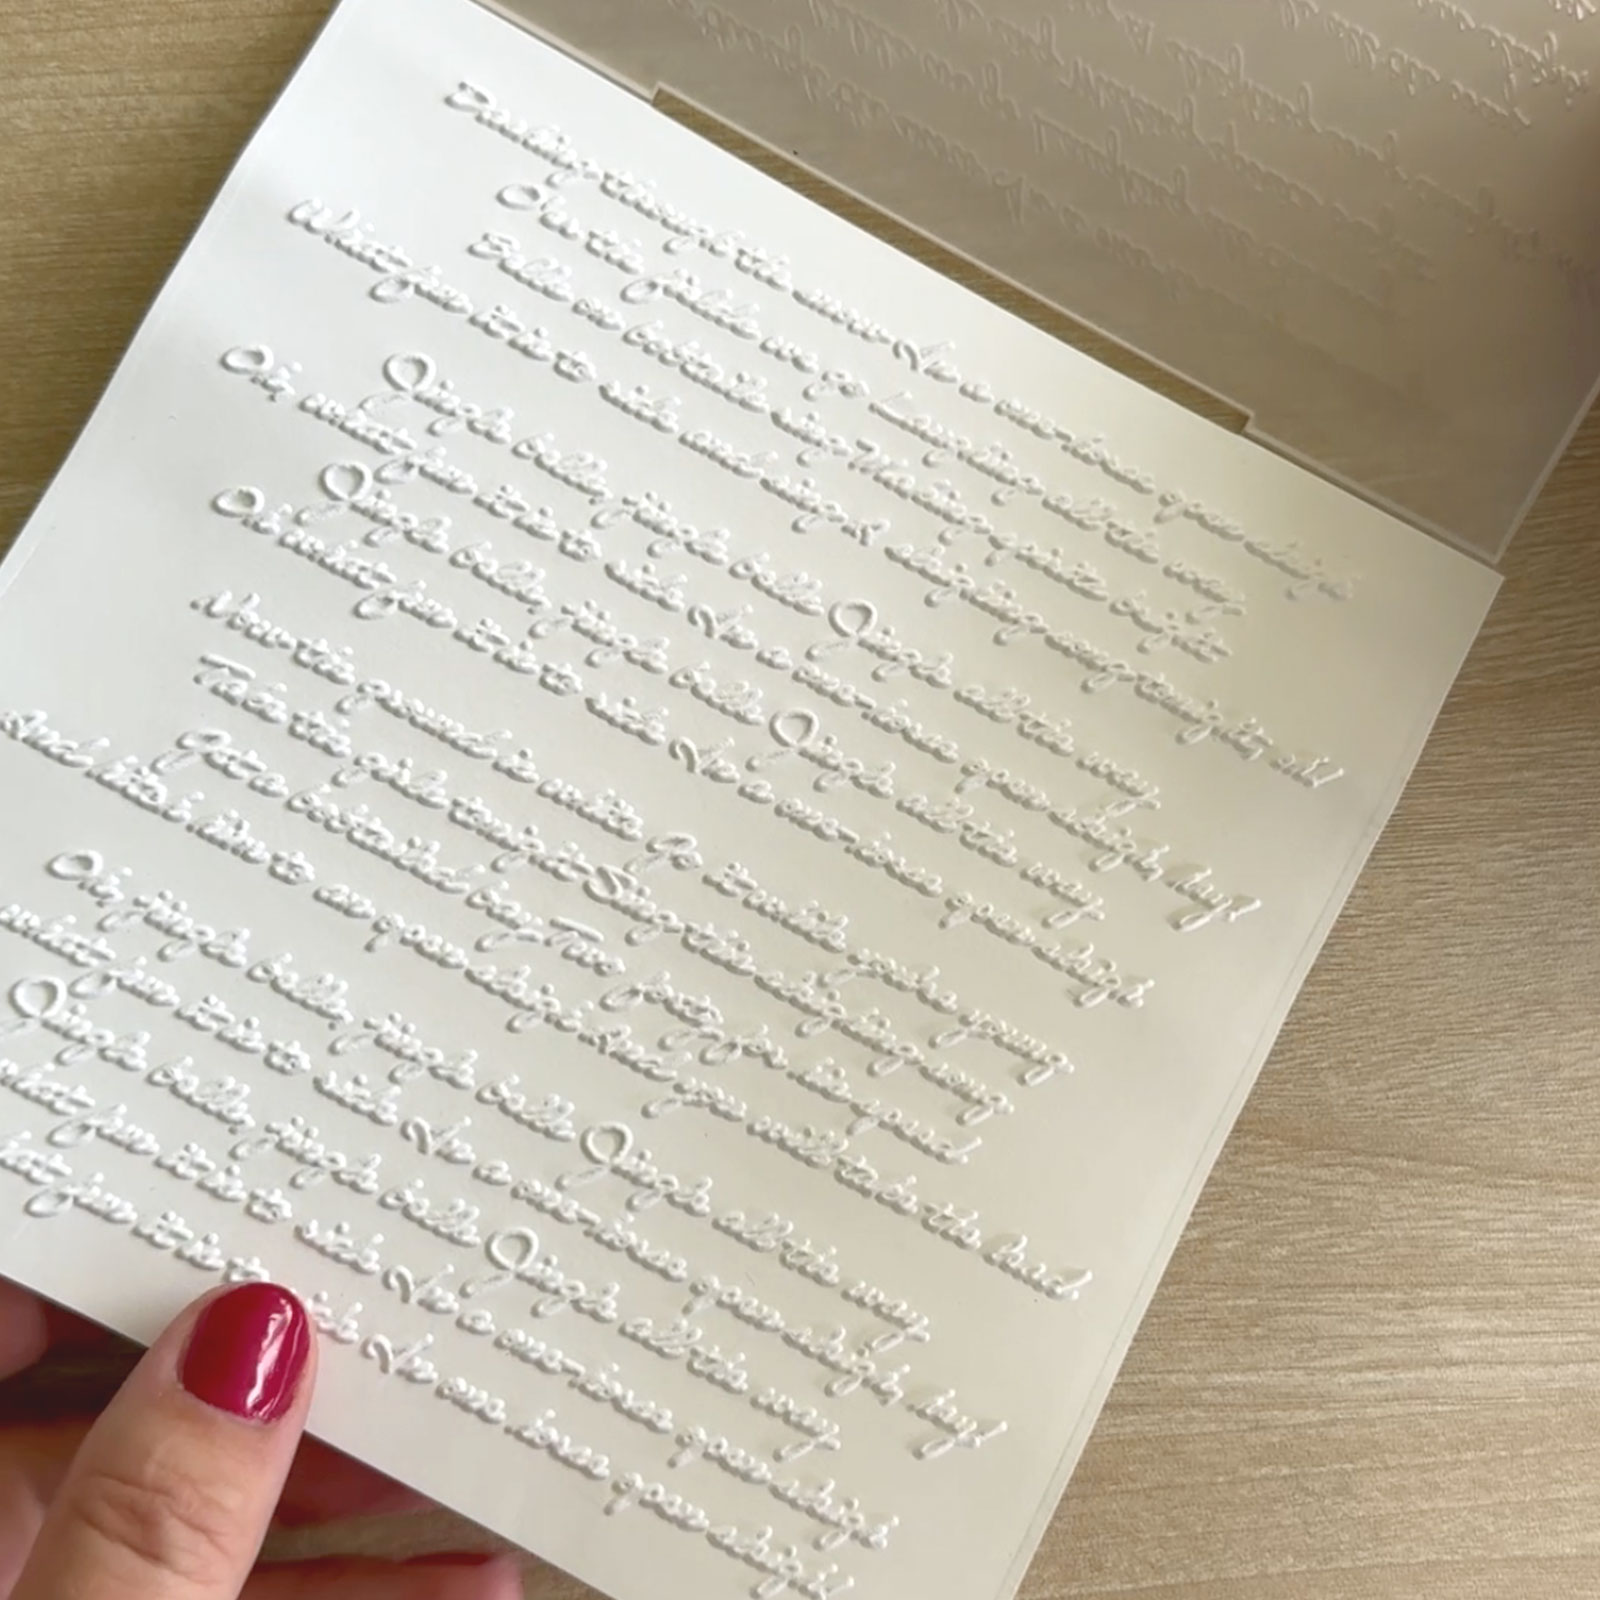 Dashing through the snow In a one-horse open sleigh
O'er the fields we go Laughing all the way
Bells on bobtails ring Making spirits bright
What fun it is to ride and sing A sleighing song tonight, oh!
Jingle bells, jingle bells Jingle all the way
Oh, what fun it is to ride In a one-horse open sleigh, hey!
Jingle bells, jingle bells Jingle all the way
Oh, what fun it is to ride In a one-horse open sleigh
Now the ground is white Go it while you're young
Take the girls tonight Sing this sleighing song
Get a bobtailed bay Two forty for his speed
And hitch him to an open sleigh And you will take the lead
Oh, jingle bells, jingle bells Jingle all the way
what fun it is to ride In a one-horse open sleigh, hey!
Jingle bells, jingle bells Jingle all the way
what fun it is to ride In a one-horse open sleigh
fun it is to In one horse open sleigh